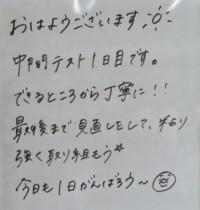 おはようございます
中間テスト1日目です。
できるところから丁寧に!!
最後まで見直しをして、粘り
強く取り組もう
今日も1日がんばろう〜